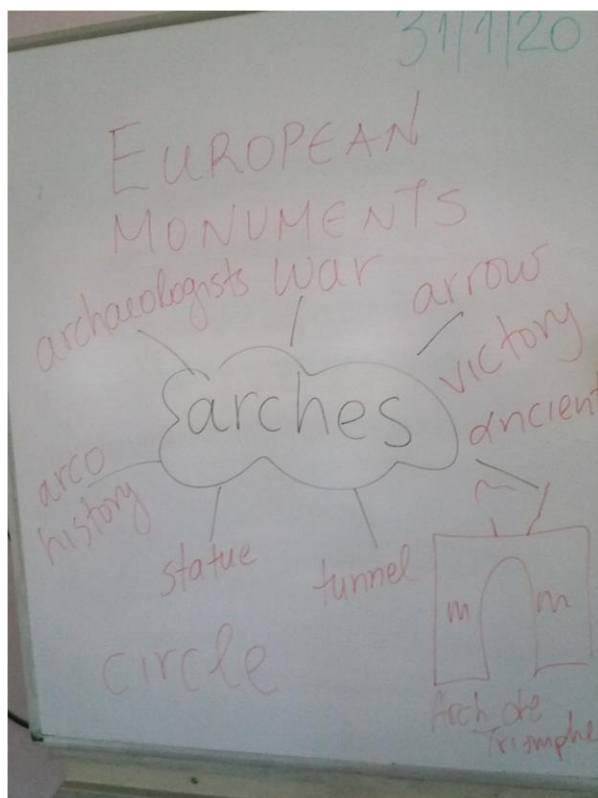 31/1/20
EUROPEAN
MONUMENTS
archaeologists war arrow
victory
arches
ancient
arco
history
statue tunnel
circle
m m
Arch de
Triomphe